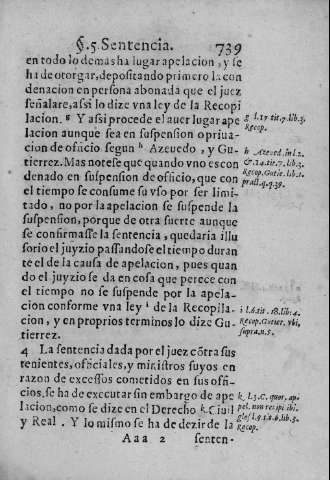 §.5. Sentencia. 739
en todo lo demas ha lugar apelacion, y se
ha de otorgar, depositando primero la con
denacion en persona abonada que el juez
señalare, assi lo dize vna ley de la Recopi
lacion. g Y assi procede el auer lugar ape
lacion aunque sea en suspension o priua-
cion de officio segun h Azeuedo, y Gu-
tierrez. Mas notese que quando vno es con
denado en suspension de officio, que con
el tiempo se consume su vso por ser limi-
tado, no por la apelacion se suspende la
suspension, porque de otra suerte aunque
se confirmasse la sentencia, quedaria illu
sorio el juyzio passandose el tiempo duran
te el de la causa de apelacion, pues quan
do el juyzio se da en cosa que perece con
el tiempo no se suspende por la apela-
cion conforme vna ley i de la Recopila-
cion, y en proprios terminos lo dize Gu-
tierrez.
4 La sentencia dada por el juez cõtra sus
tenientes, officiales, y ministros suyos en
razon de excessos cometidos en sus offi-
cios, se ha de executar sin embargo de ape
lacion, como se dize en el Derecho k Ciuil
y Real. Y lo mismo se ha de dezir de la
Aaa 2 senten-
g l. 17 tit. 7. lib. 3.
Recop.
h Azeud. in l. 2.
& 14. tit. 7. lib. 3.
Recop. Gutie. lib. 1.
pract. q. q. 39.
i l. 6. tit. 18. lib. 4.
Recop. Gutier. vbi,
supra. n. 5.
k l. 3. C. quor. ap-
pel. non recipi ibi,
Recop.